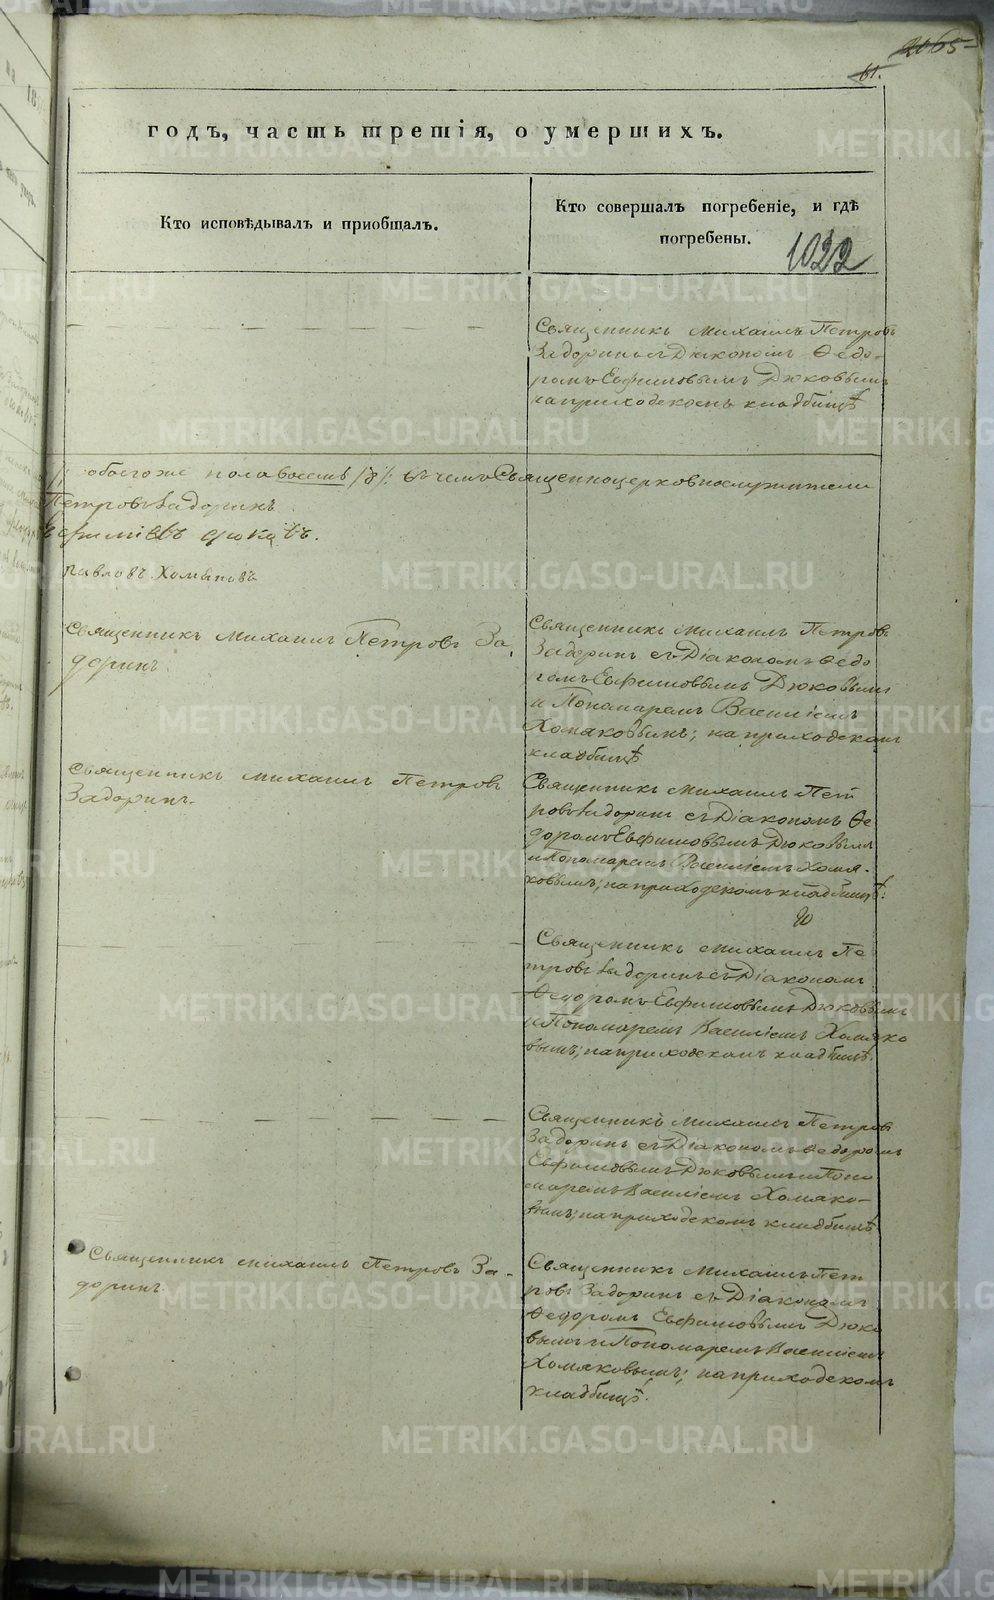 2065
61.
годъ, часть третія, о умершихъ.
Кто исповѣдывалъ и пріобщалъ.
Кто совершалъ погребеніе, и гдѣ
погребены.
1022
Священникъ Михаилъ Петровъ
Задоринъ съ Діакономъ Ѳедо-
ромъ Евфимовымъ Дюковымъ
на приходскомъ кладбищѣ
обоего же пола восемь /8/: въ чемъ Священноцерковнослужители
Петровъ Задоринъ
Ефимовъ Дюковъ.
Павловъ Хомяковъ
Священникъ Михаилъ Петровъ За
доринъ.
Священникъ Михаилъ Петровъ
Задоринъ съ Діакономъ Ѳедо
ромъ Евфимовымъ Дюковымъ
и Пономаремъ Василіемъ
Хомяковымъ; на приходскомъ
кладбищѣ
Священникъ Михаилъ Петровъ
Задоринъ.
Священникъ Михаилъ Пет
ровъ Задоринъ съ Діакономъ Ѳе
доромъ Евфимовымъ Дюковымъ
и Пономаремъ Василіемъ Хомя-
ковымъ; на приходскомъ кладбищѣ.
Священникъ Михаилъ Пе
тровъ Задоринъ съ Діакономъ
Ѳедоромъ Евфимовымъ Дюковымъ
и Пономаремъ Василіемъ Хомяко
вымъ; на приходскомъ кладбищѣ.
Священникъ Михаилъ Петровъ
Задоринъ съ Діакономъ Ѳедоромъ
Евфимовымъ Дюковымъ и Поно
маремъ Василіемъ Хомяко-
вымъ; на приходскомъ кладбищѣ
Священникъ Михаилъ Петровъ За-
доринъ.
Священникъ Михаилъ Пет
ровъ Задоринъ съ Діакономъ
Ѳедоромъ Евфимовымъ Дюко
вымъ и Пономаремъ Василіемъ
Хомяковымъ; на приходскомъ
кладбищѣ.
METRIKI.GASO-URAL.RU